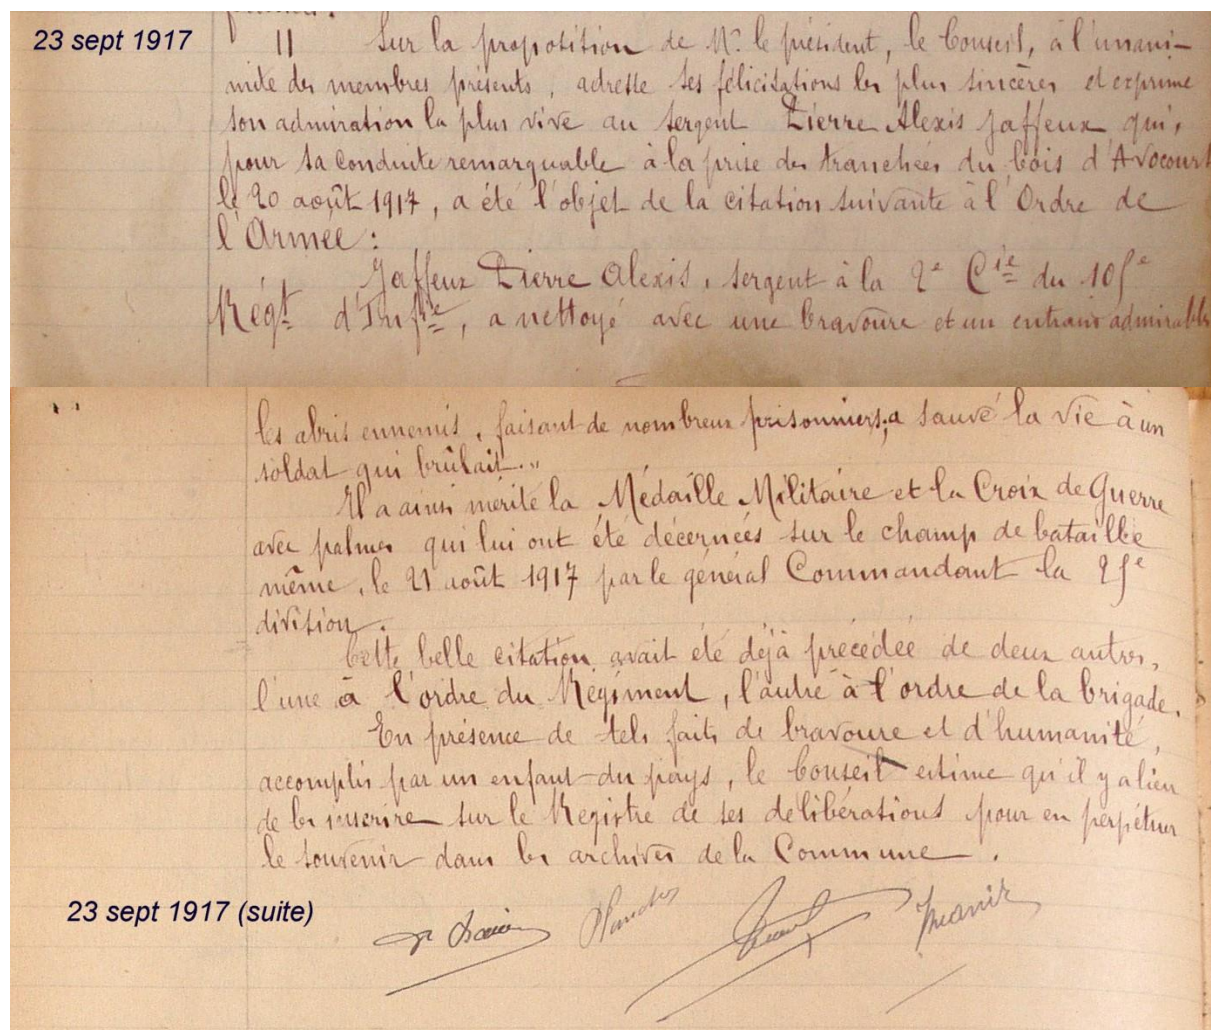 23 sept 1917
II Sur la proposition de Mr. le président, le Conseil, à l'unani-
mité des membres présents, adresse ses félicitations les plus sincères et exprime
son admiration la plus vive au sergent Pierre Alexis Jaffeux qui,
pour sa conduite remarquable à la prise des tranchées du bois d'Avocourt
le 20 août 1917, a été l'objet de la citation suivante à l'Ordre de
l'Armée :
Jaffeux Pierre Alexis, sergent à la 2e Cie du 105e
Régt d'Infie, a nettoyé avec une bravoure et un entrain admirable
les abris ennemis, faisant de nombreux prisonniers; a sauvé la vie à un
soldat qui brûlait."
Il a ainsi mérité la Médaille Militaire et la Croix de Guerre
avec palmes qui lui ont été décernées sur le champ de bataille
même, le 21 août 1917 par le général Commandant la 25e
division.
Cette belle citation avait été déjà précédée de deux autres,
l'une à l'ordre du Régiment, l'autre à l'ordre de la brigade.
En présence de tels faits de bravoure et d'humanité,
accomplis par un enfant du pays, le Conseil estime qu'il y a lieu
de les inscrire sur le Registre de ses délibérations pour en perpétuer
le souvenir dans les archives de la Commune.
23 sept 1917 (suite)